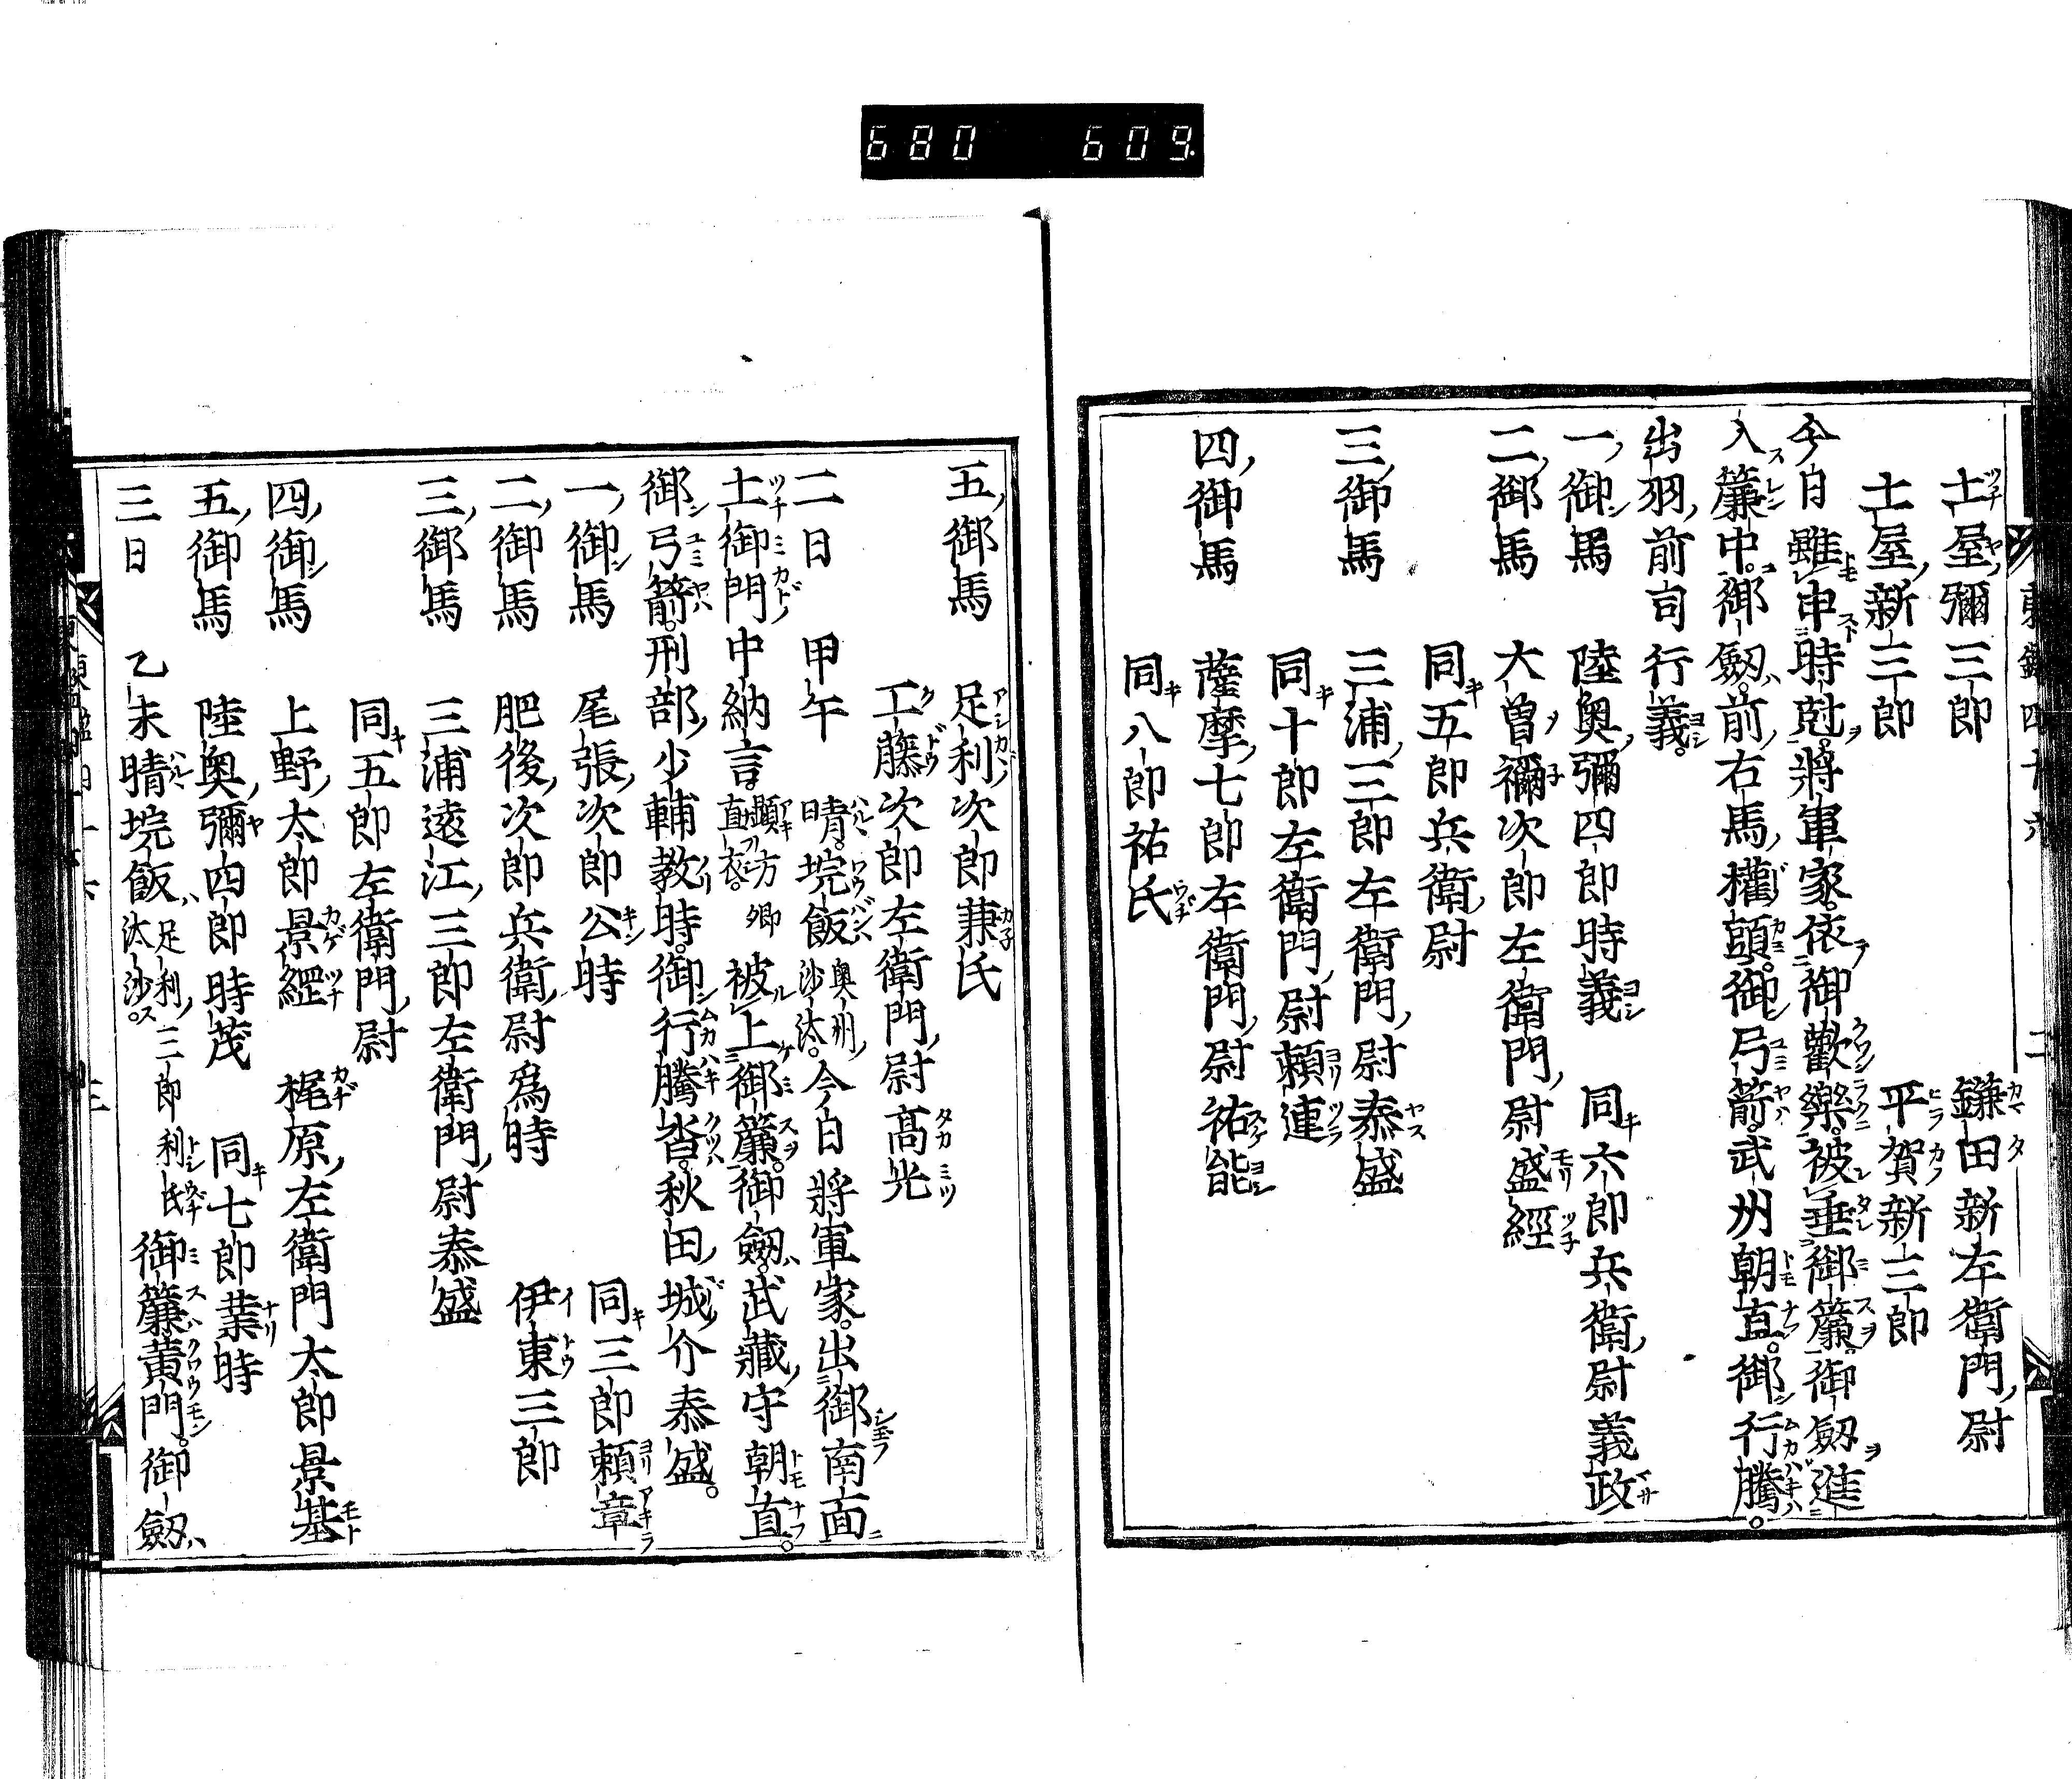 680 609.
土屋彌三郎 鎌田新左衛門尉
土屋新三郎 平賀新三郎
今日雖申時尅。將軍家。依御歡樂。被垂御簾。御劔進
入簾中。御劔。前右馬權頭。御弓箭。武州朝直。御行騰。
出羽前司行義。
一御馬 陸奥彌四郎時義 同六郎兵衛尉義政
二御馬 大曽禰次郎左衛門尉盛經
同五郎兵衛尉
三御馬 三浦三郎左衛門尉泰盛
同十郎左衛門尉頼連
四御馬 薩摩七郎左衛門尉祐能
同八郎祐氏
五御馬 足利次郎兼氏
工藤次郎左衛門尉高光
二日 甲午 晴。垸飯奥州沙汰。今日將軍家。出御南面
土御門中納言。顯方卿直衣。被上御簾。御劔。武藏守朝直。
御弓箭。刑部少輔教時。御行騰沓。秋田城介泰盛。
一御馬 尾張次郎公時 同三郎頼章
二御馬 肥後次郎兵衛尉爲時 伊東三郎
三御馬 三浦遠江三郎左衛門尉泰盛
同五郎左衛門尉
四御馬 上野太郎景經 梶原左衛門太郎景基
五御馬 陸奥彌四郎時茂 同七郎業時
三日 乙未晴垸飯足利三郎利氏汰沙。御簾黄門。御劔